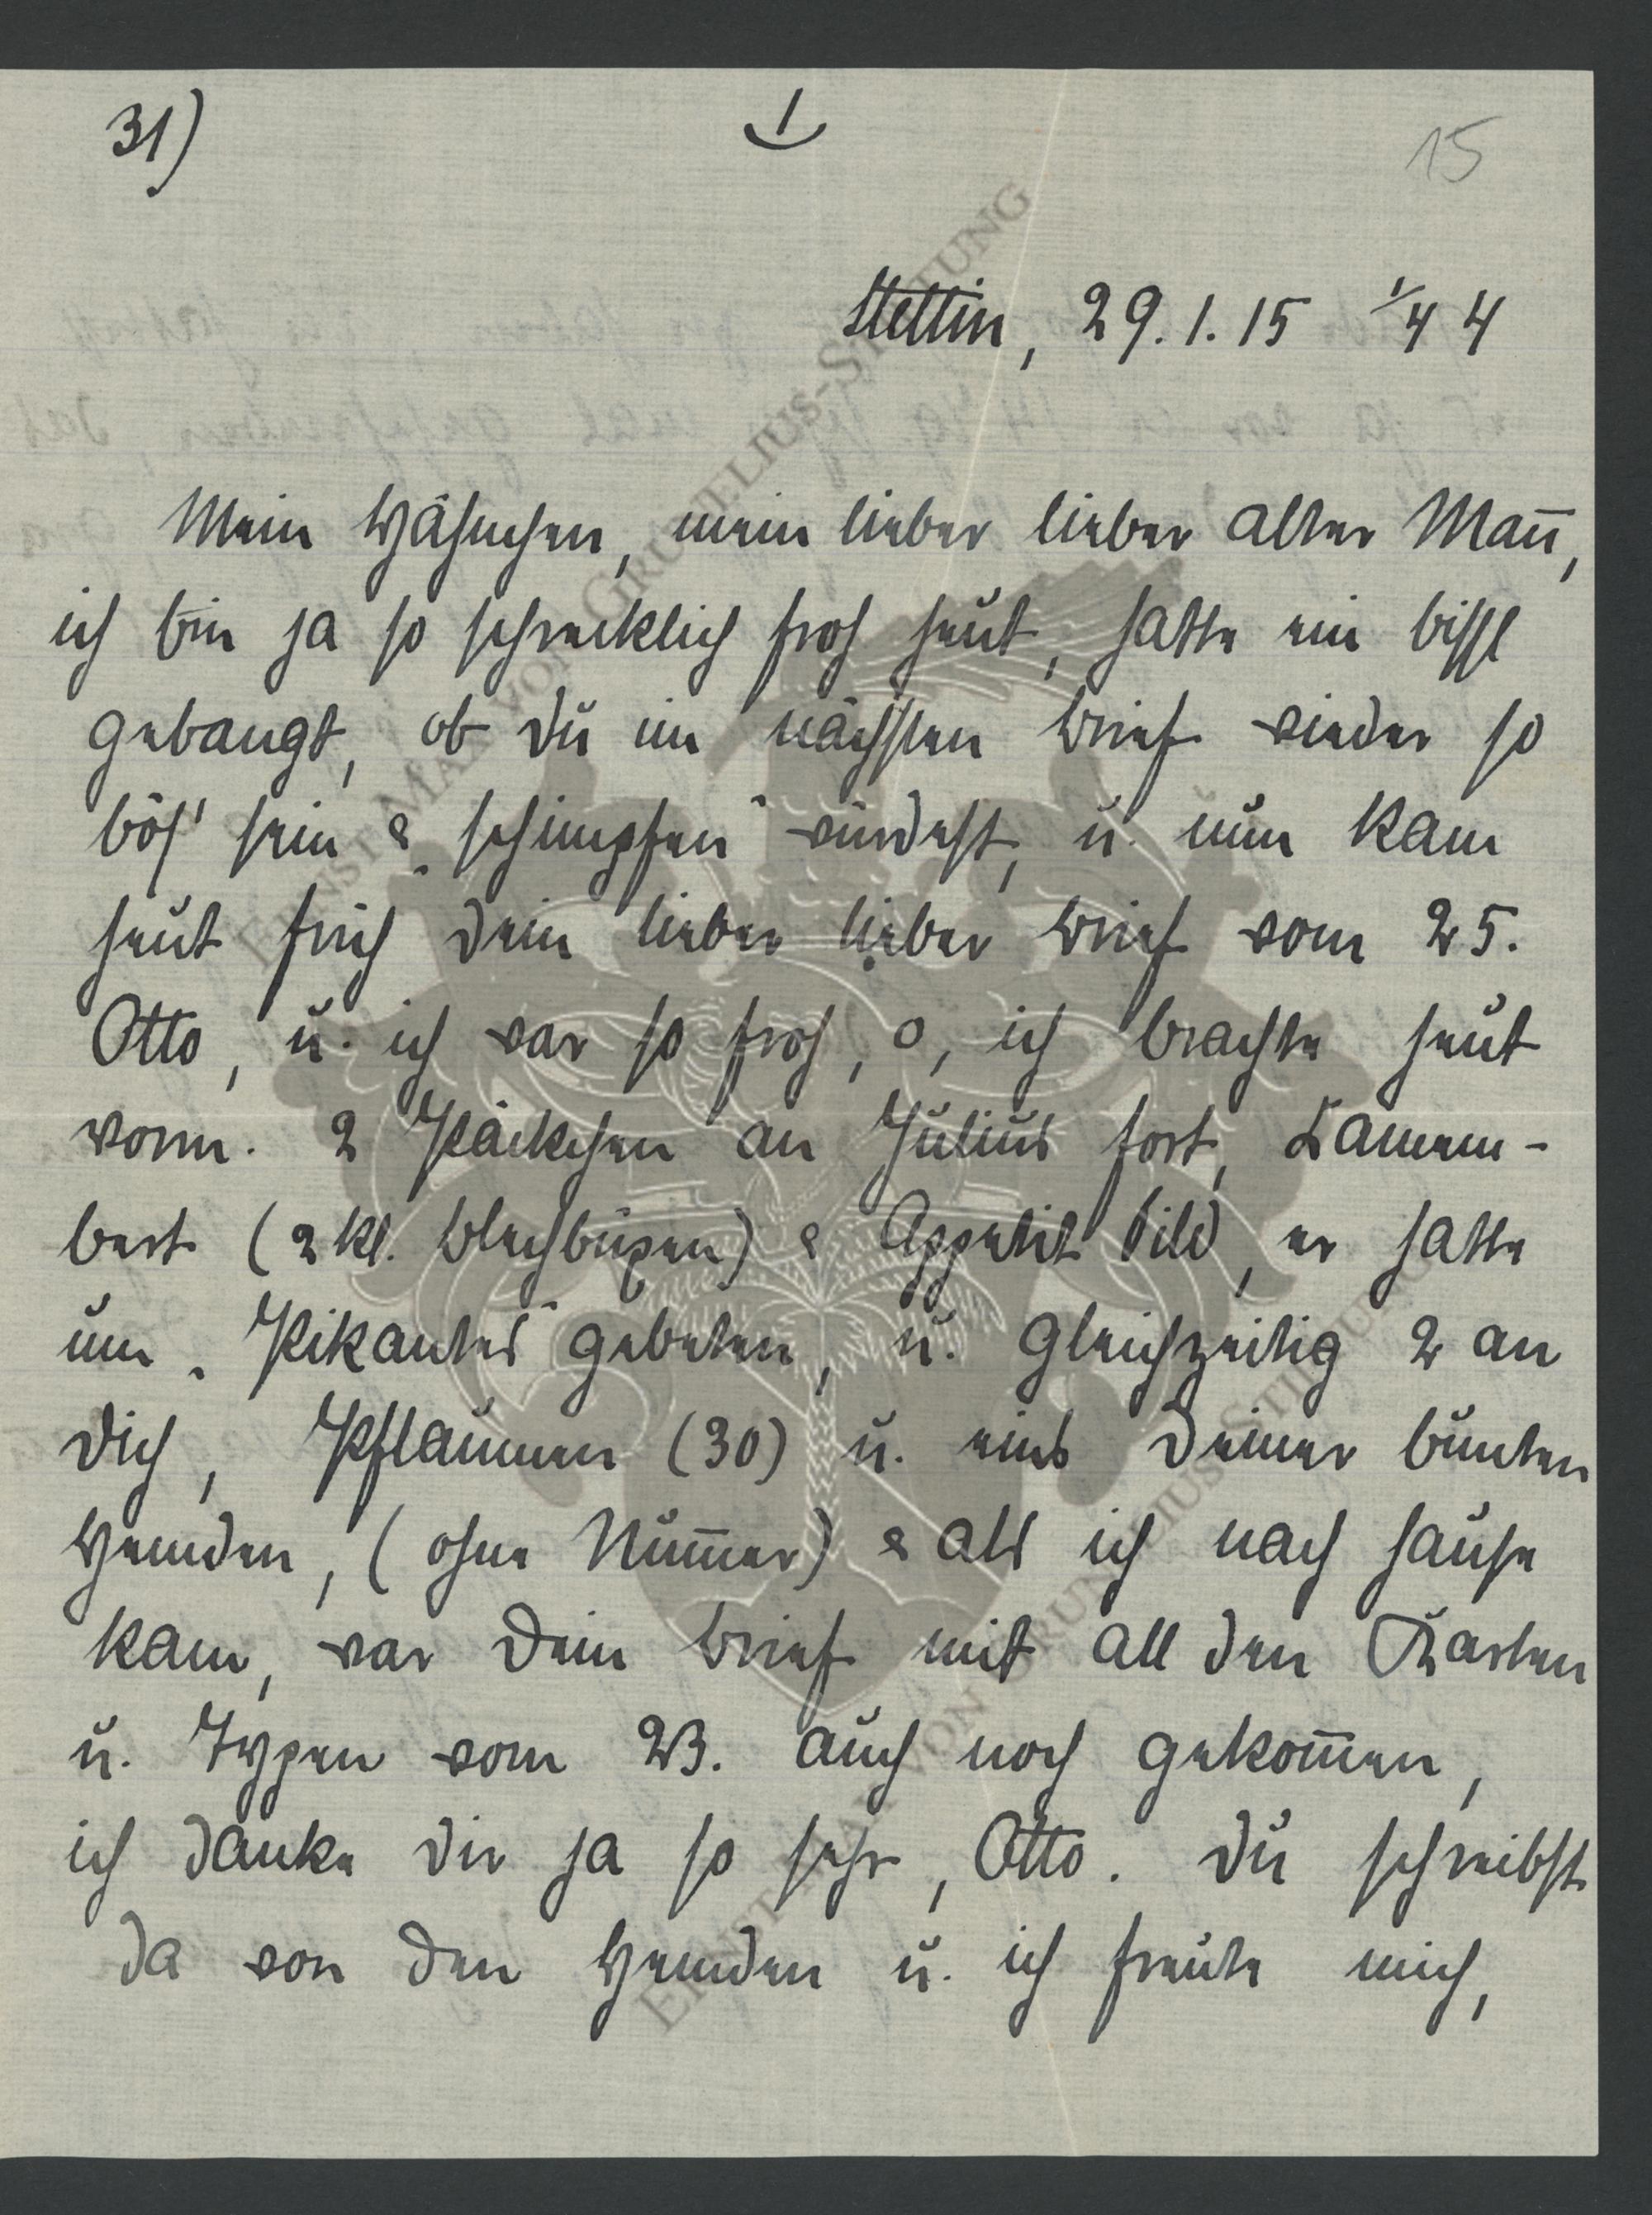 31) 1 15
Stettin, 29.1.15 1/4 4
Mein Hähnchen, mein lieber lieber alter Mañ,
ich bin ja so schrecklich froh heut, hatte ein bissl
gebangt, ob du im nächsten Brief wieder so
bös' sein & „schimpfen“ würdest, u. nun kam
heut früh dein lieber lieber Brief vom 25.
Otto, u. ich war so froh, o, ich brachte heut
vorm. 2 Päckchen an Julius fort, Camem-
bert (2 kl. Blechbüxen) & Appetit Sild, er hatte
um „Pikantes“ gebeten, u. gleichzeitig 2 an
dich, Pflaumen (30) u. eins Deiner bunten
Hemden, (ohne Num̄er) & als ich nach hause
kam, war Dein Brief mit all den Karten
u. Typen vom 23. auch noch gekom̄en,
ich danke dir ja so sehr, Otto. Du schreibst
da von den Hemden u. ich freute mich,
ERNST MAX VON GRUNELIUS-STIFTUNG
ERNST MAX VON GRUNELIUS-STIFTUNG